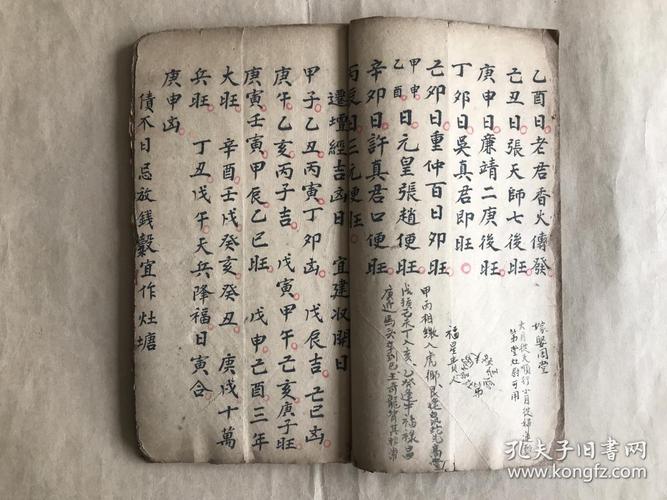 乙酉日老君香火傳發
己丑日張天師七後旺
庚申日廉靖二庚後旺
丁卯日吳真君即旺
己卯日重仲百日卯旺
甲申乙酉日元皇張趙便旺
辛卯日許真君口便旺
丙辰日三元便旺
嫁娶周堂
大月從夫順行小月從婦逆
第堂灶廚可用
福星貴人
甲丙相
遷壇經吉凶日 宜建收開日
甲子乙丑丙寅丁卯凶 戊辰己巳凶
庚午乙亥丙子吉 戊寅甲午己亥庚子旺
庚寅壬寅甲辰乙巳旺 戊申己酉三年
大旺 辛酉壬戌癸亥癸丑 庚戌十萬
兵旺 丁丑戊午天兵降福日寅合
庚申凶
債不日忌放錢穀宜作灶塘
孔夫子旧书网
www.kongfz.com